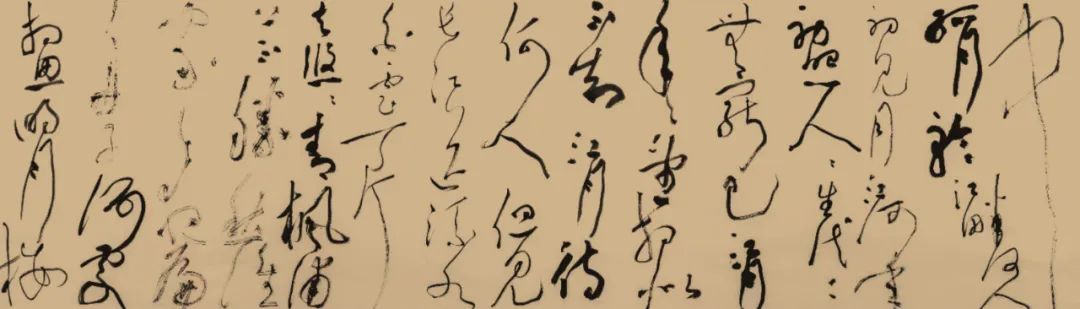 中
孤月輪江畔何人
初見月江月何年
初照人人生代代
無窮已江月
年年望相似
不知江月待
何人但見
長江送流水
白雲一片
去悠悠青楓浦
上不勝愁誰
家今夜扁
舟子何處
相思明月樓